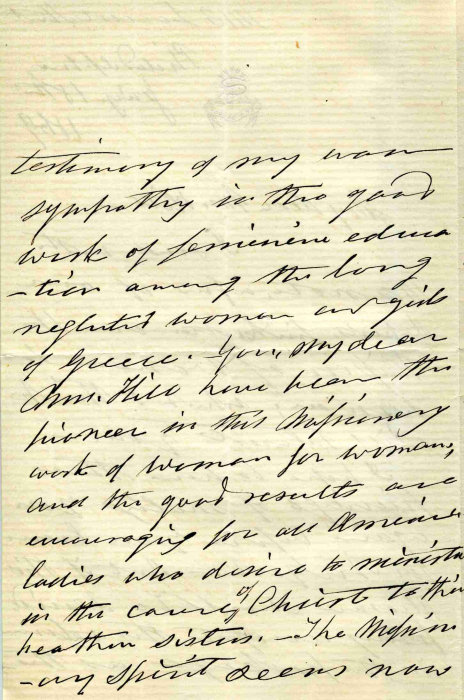 testimony of my warm
sympathy in the good
work of feminine educa
-tion among the long
neglected women and girls
of Greece. You, my dear
Mrs. Hill have been the
pioneer in this Missionary
work of woman for woman,
and the good results are
encouraging for all American
ladies who desire to minister
in the cause of Christ to their
heathen sisters. - The Mission
-ary spirit seems now